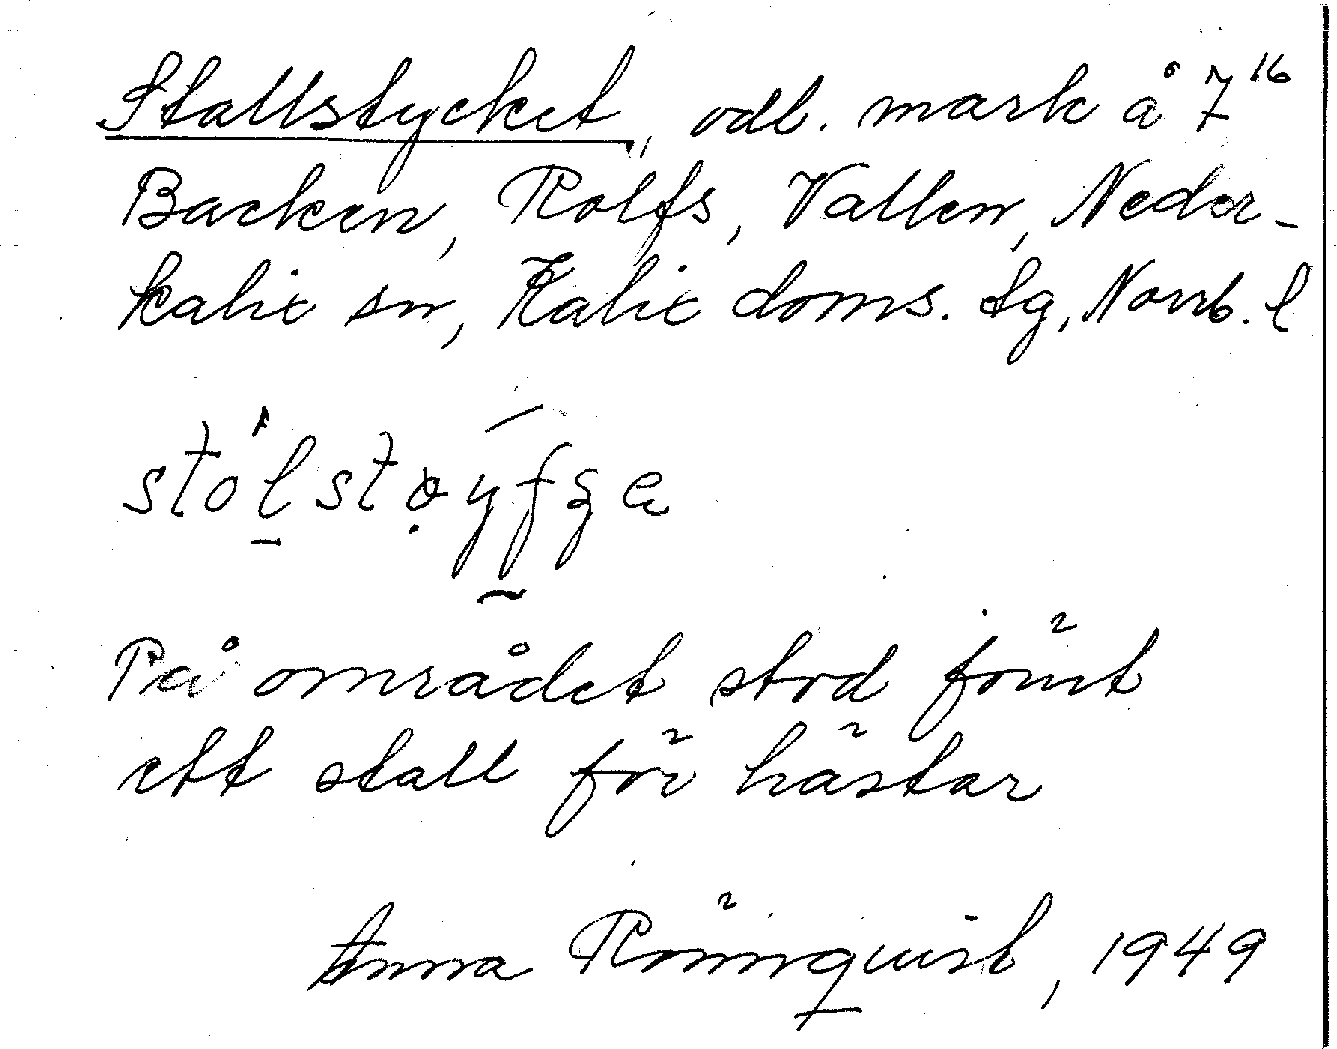 Stallstycket, odl. mark å 7¹⁶
Backen, Rolfs, Vallen, Neder-
kalix sn, Kalix doms. tg, Norrb. l
På området stod förut
ett stall för hästar
Anna Rönnquist, 1949